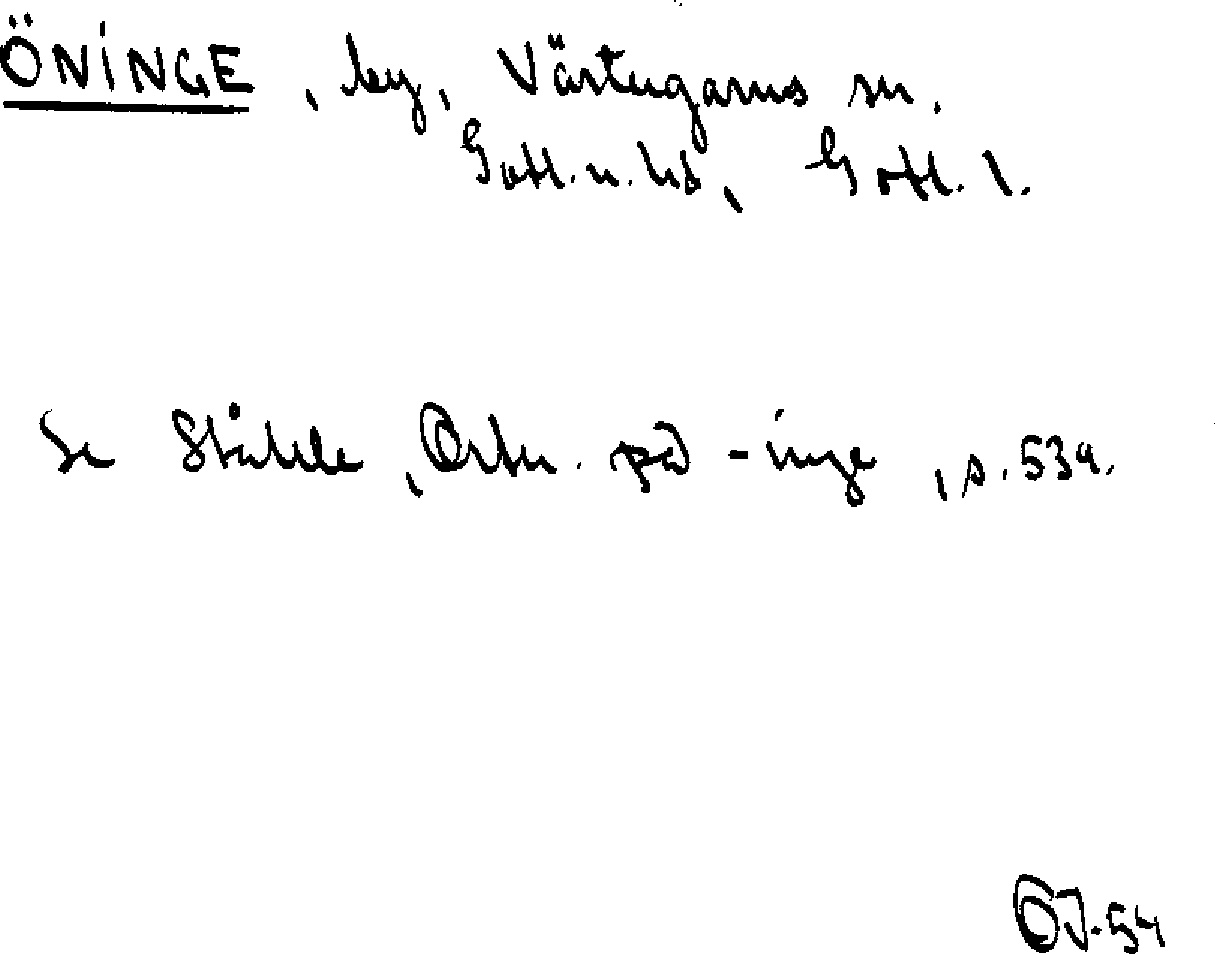 ÖNINGE, by, Västergarns sn.
Gotl. n. hd, Gotl. l.
Se Ståhle, Ortn. på -inge, s. 539.
OJ. 54